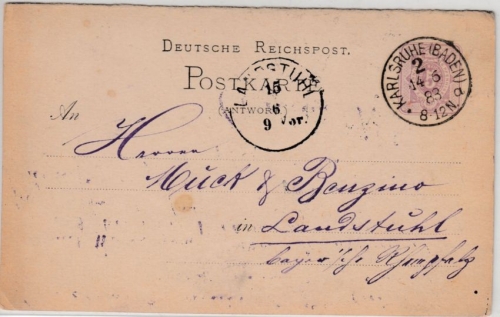 DEUTSCHE REICHSPOST.
POSTKARTE
(ANTWORT)
KARLSRUHE (BADEN)
2
14 6
83
8-12 N.
LANDSTUHL
15
6
9 Vor.
An
Herren
Muck & Benzino
in Landstuhl
bayer'sche Rheinpfalz